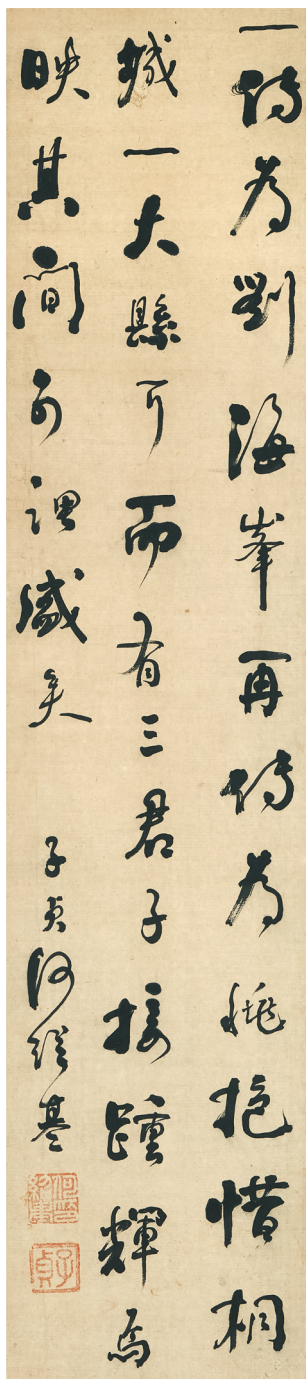 一傳為劉海峯再傳為姚抱惜桐
城一大縣耳而有三君子接踵輝焉
映其間可謂盛矣 子貞何紹基
何紹基印
子貞